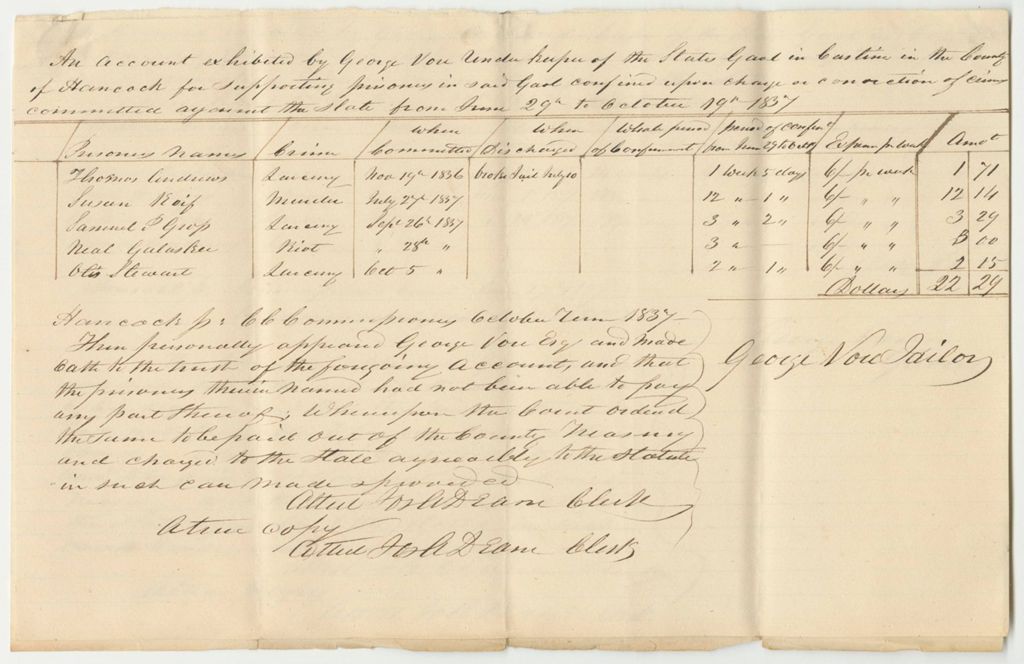 An account exhibited by George Vose Under keeper of the States Gaol in Castine in the County
of Hancock for supporting prisoners in said Gaol confined upon charge or conviction of crimes
committed against the State from June 29th to October 19th 1837
Prisoners names | Crime | When Committed | When Discharged | Whole period of Confinement | period of confint from June 29 to Octr | Expense per week | Amot
Thomas Andrews | Larceny | Nov 19th 1836 | broke Jail July 10 | 1 week 5 days | 6/ per week | 1 71
Susan | Murder | July 27th 1837 | 12 " 1 " | 6/ " " | 12 14
Samuel P Gross | Larceny | Sept 26th 1837 | 3 " 2 " | 6/ " " | 3 29
Neal | Riot | " 28th " | 3 " | 6/ " " | 3 00
Otis Stewart | Larceny | Oct 5 " | 2 " 1 " | 6/ " " | 2 15
Dollars 22 29
Hancock ss: CC Commissioners October Term 1837
Then personally appeared George Vose Esq and made
Oath to the truth of the foregoing account, and that
the prisoners therein named had not been able to pay
any part thereof; Whereupon the Court ordered
the same to be paid out of the County Treasury
and charged to the State agreeably to the Statute
in such case made & provided
Attest Jos A Deane Clerk
George Vose Jailor
A true copy
Attest Jos A Deane Clerk